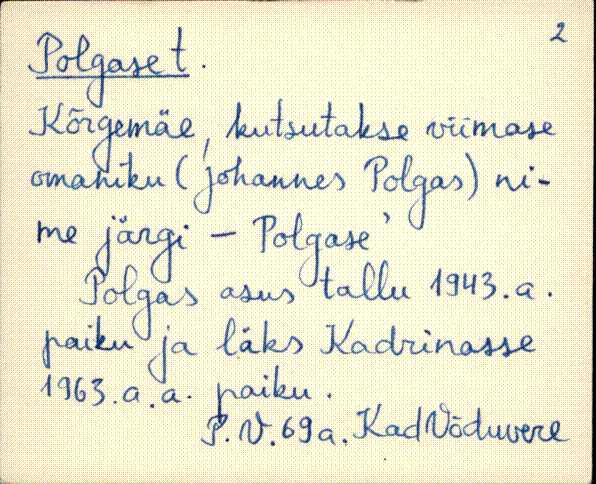 2
Polgase t.
Kõrgemäe, kutsutakse viimase
omaniku (Johannes Polgas) ni-
me järgi – Polgase'
Polgas asus tallu 1943.a.
paiku ja läks Kadrinasse
1963.a.a. paiku.
P.V.69a. Kad Võduvere